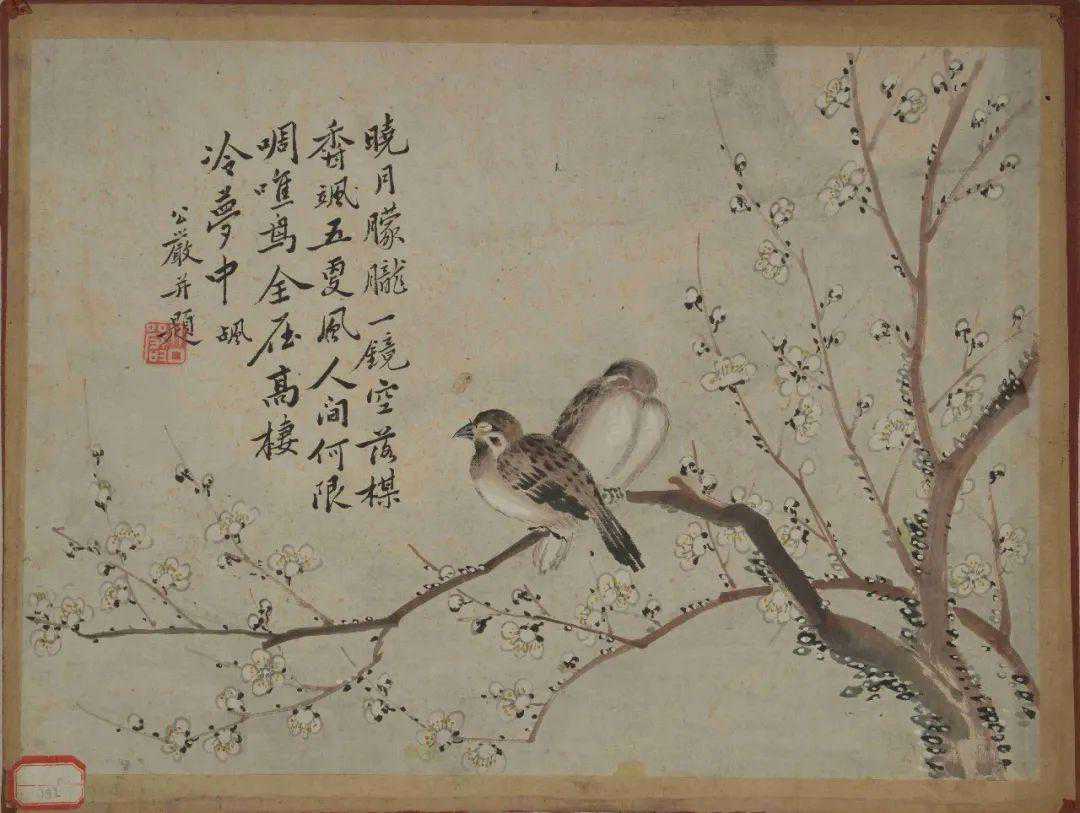 曉月朦朧一鏡空落楳
香颯五更風人間何限
啁噍鳥全在高棲
冷夢中
公嚴并題